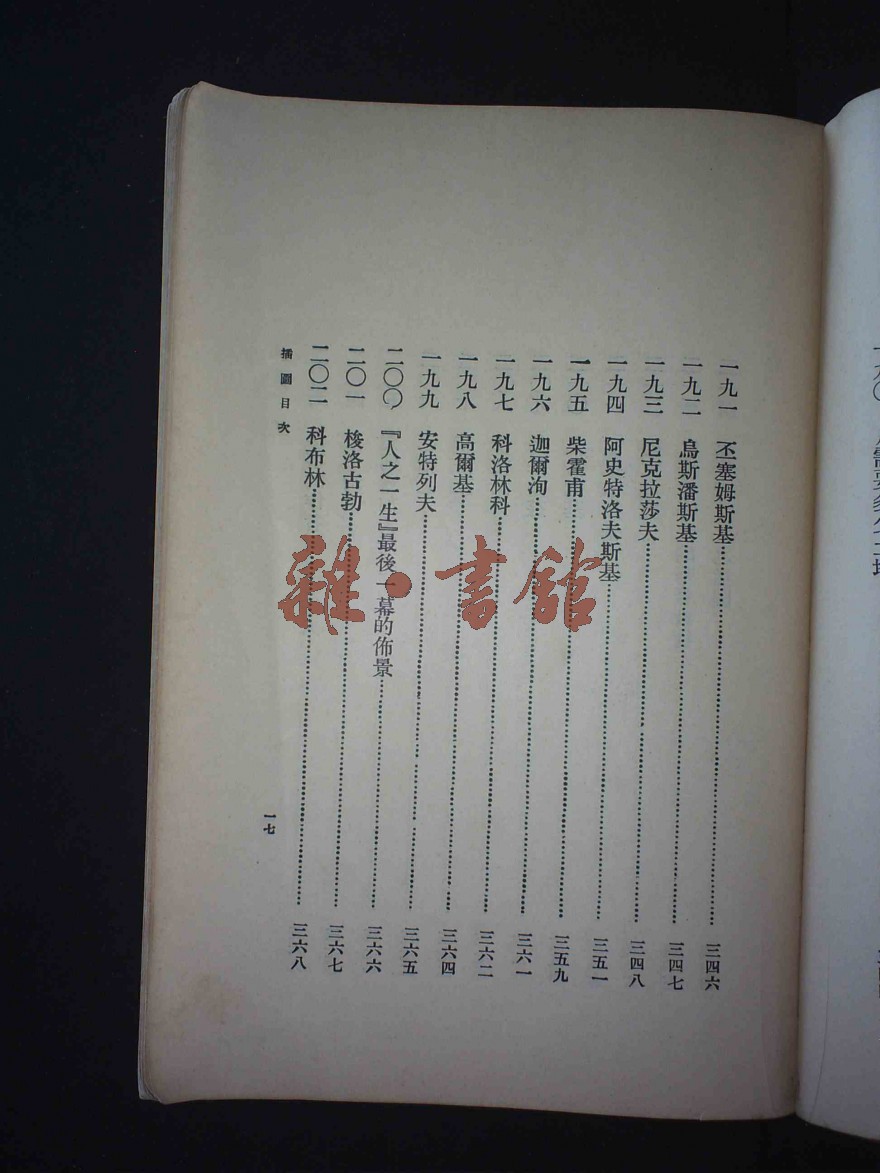 一九一 丕塞姆斯基……三四六
一九二 烏斯潘斯基……三四七
一九三 尼克拉莎夫……三四八
一九四 阿史特洛夫斯基……三五一
一九五 柴霍甫……三五九
一九六 迦爾洵……三六一
一九七 科洛林科……三六二
一九八 高爾基……三六四
一九九 安特列夫……三六五
二〇〇 『人之一生』最後一幕的佈景……三六六
二〇一 梭洛古勃……三六七
二〇二 科布林……三六八
插圖目次
一七
雜·書館